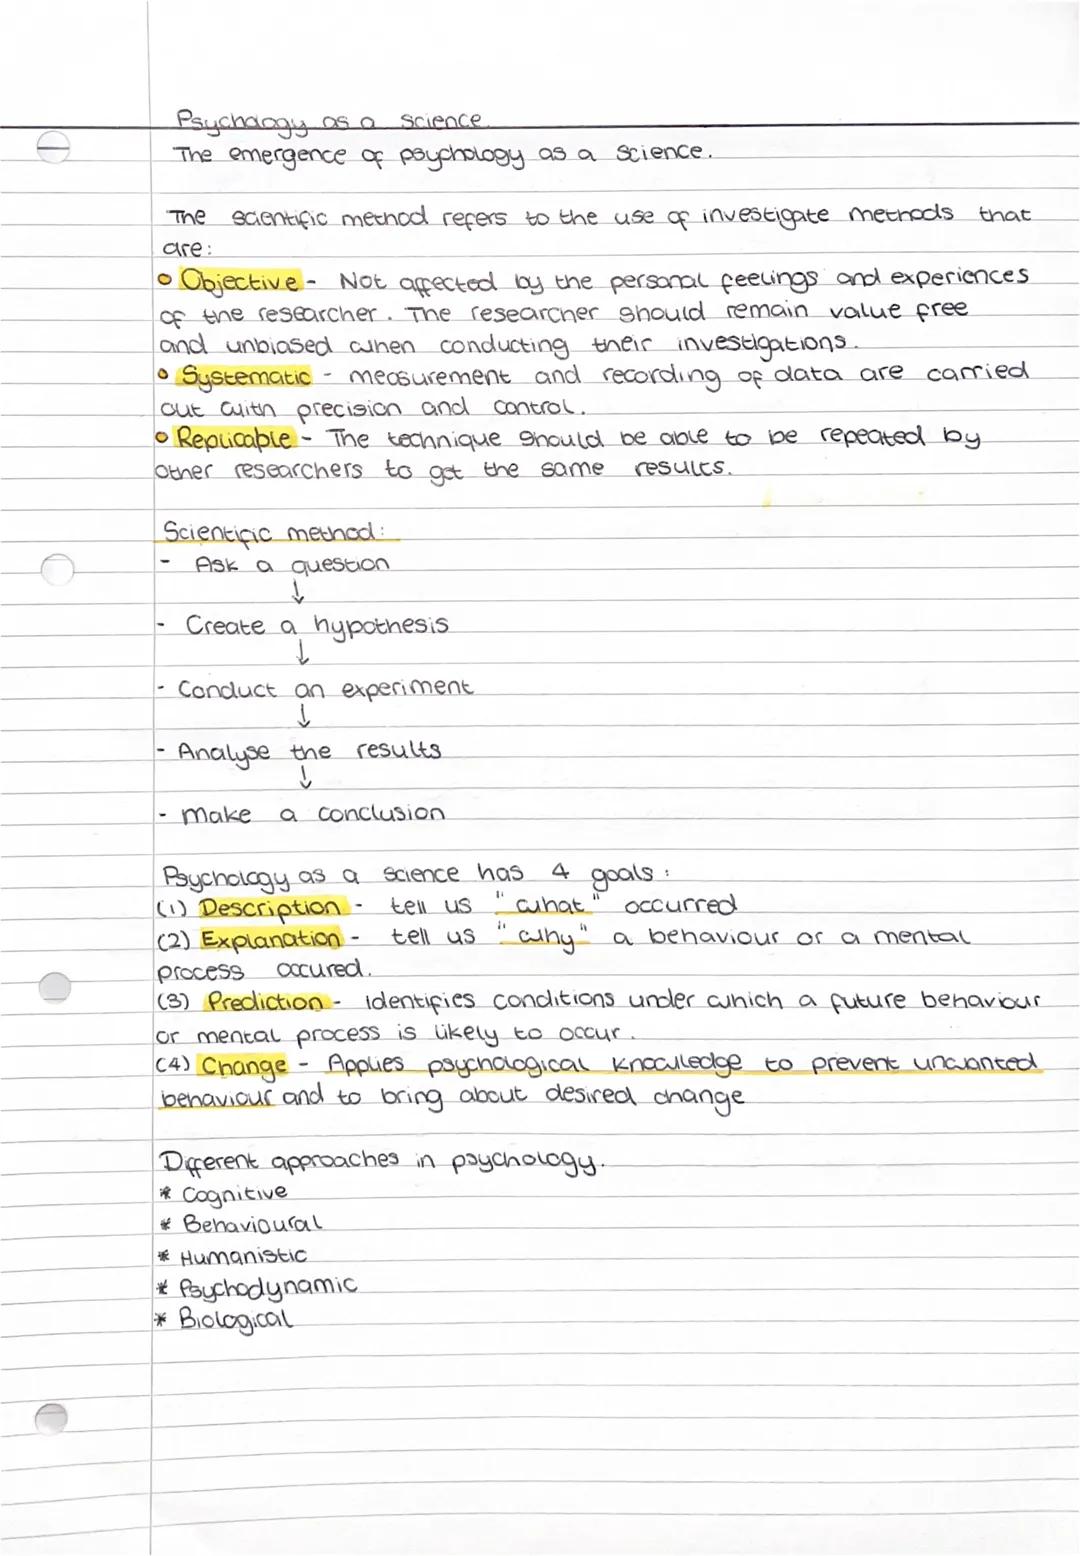 Psychology as a science.
The emergence of psychology as a science.
The scientific method refers to the use of investigate methods that
are:
Objective - Not affected by the personal feelings and experiences
of the researcher. The researcher should remain value free
and unbiased when conducting their investigations.
Systematic - measurement and recording of data are carried
out with precision and control.
Replicable - The technique should be able to be repeated by
other researchers to get the same results.
Scientific method:
- Ask a question
↓
- Create a hypothesis
↓
- Conduct an experiment
↓
- Analyse the results
↓
- Make a conclusion
Psychology as a science has 4 goals:
(1) Description - tell us "what" occurred
(2) Explanation - tell us "why" a behaviour or a mental
process occured.
(3) Prediction - identifies conditions under which a future behaviour
or mental process is likely to occur.
(4) Change - Applies psychological knowledge to prevent unwanted
behaviour and to bring about desired change
Different approaches in psychology.
* Cognitive
* Behavioural
* Humanistic
* Psychodynamic
* Biological